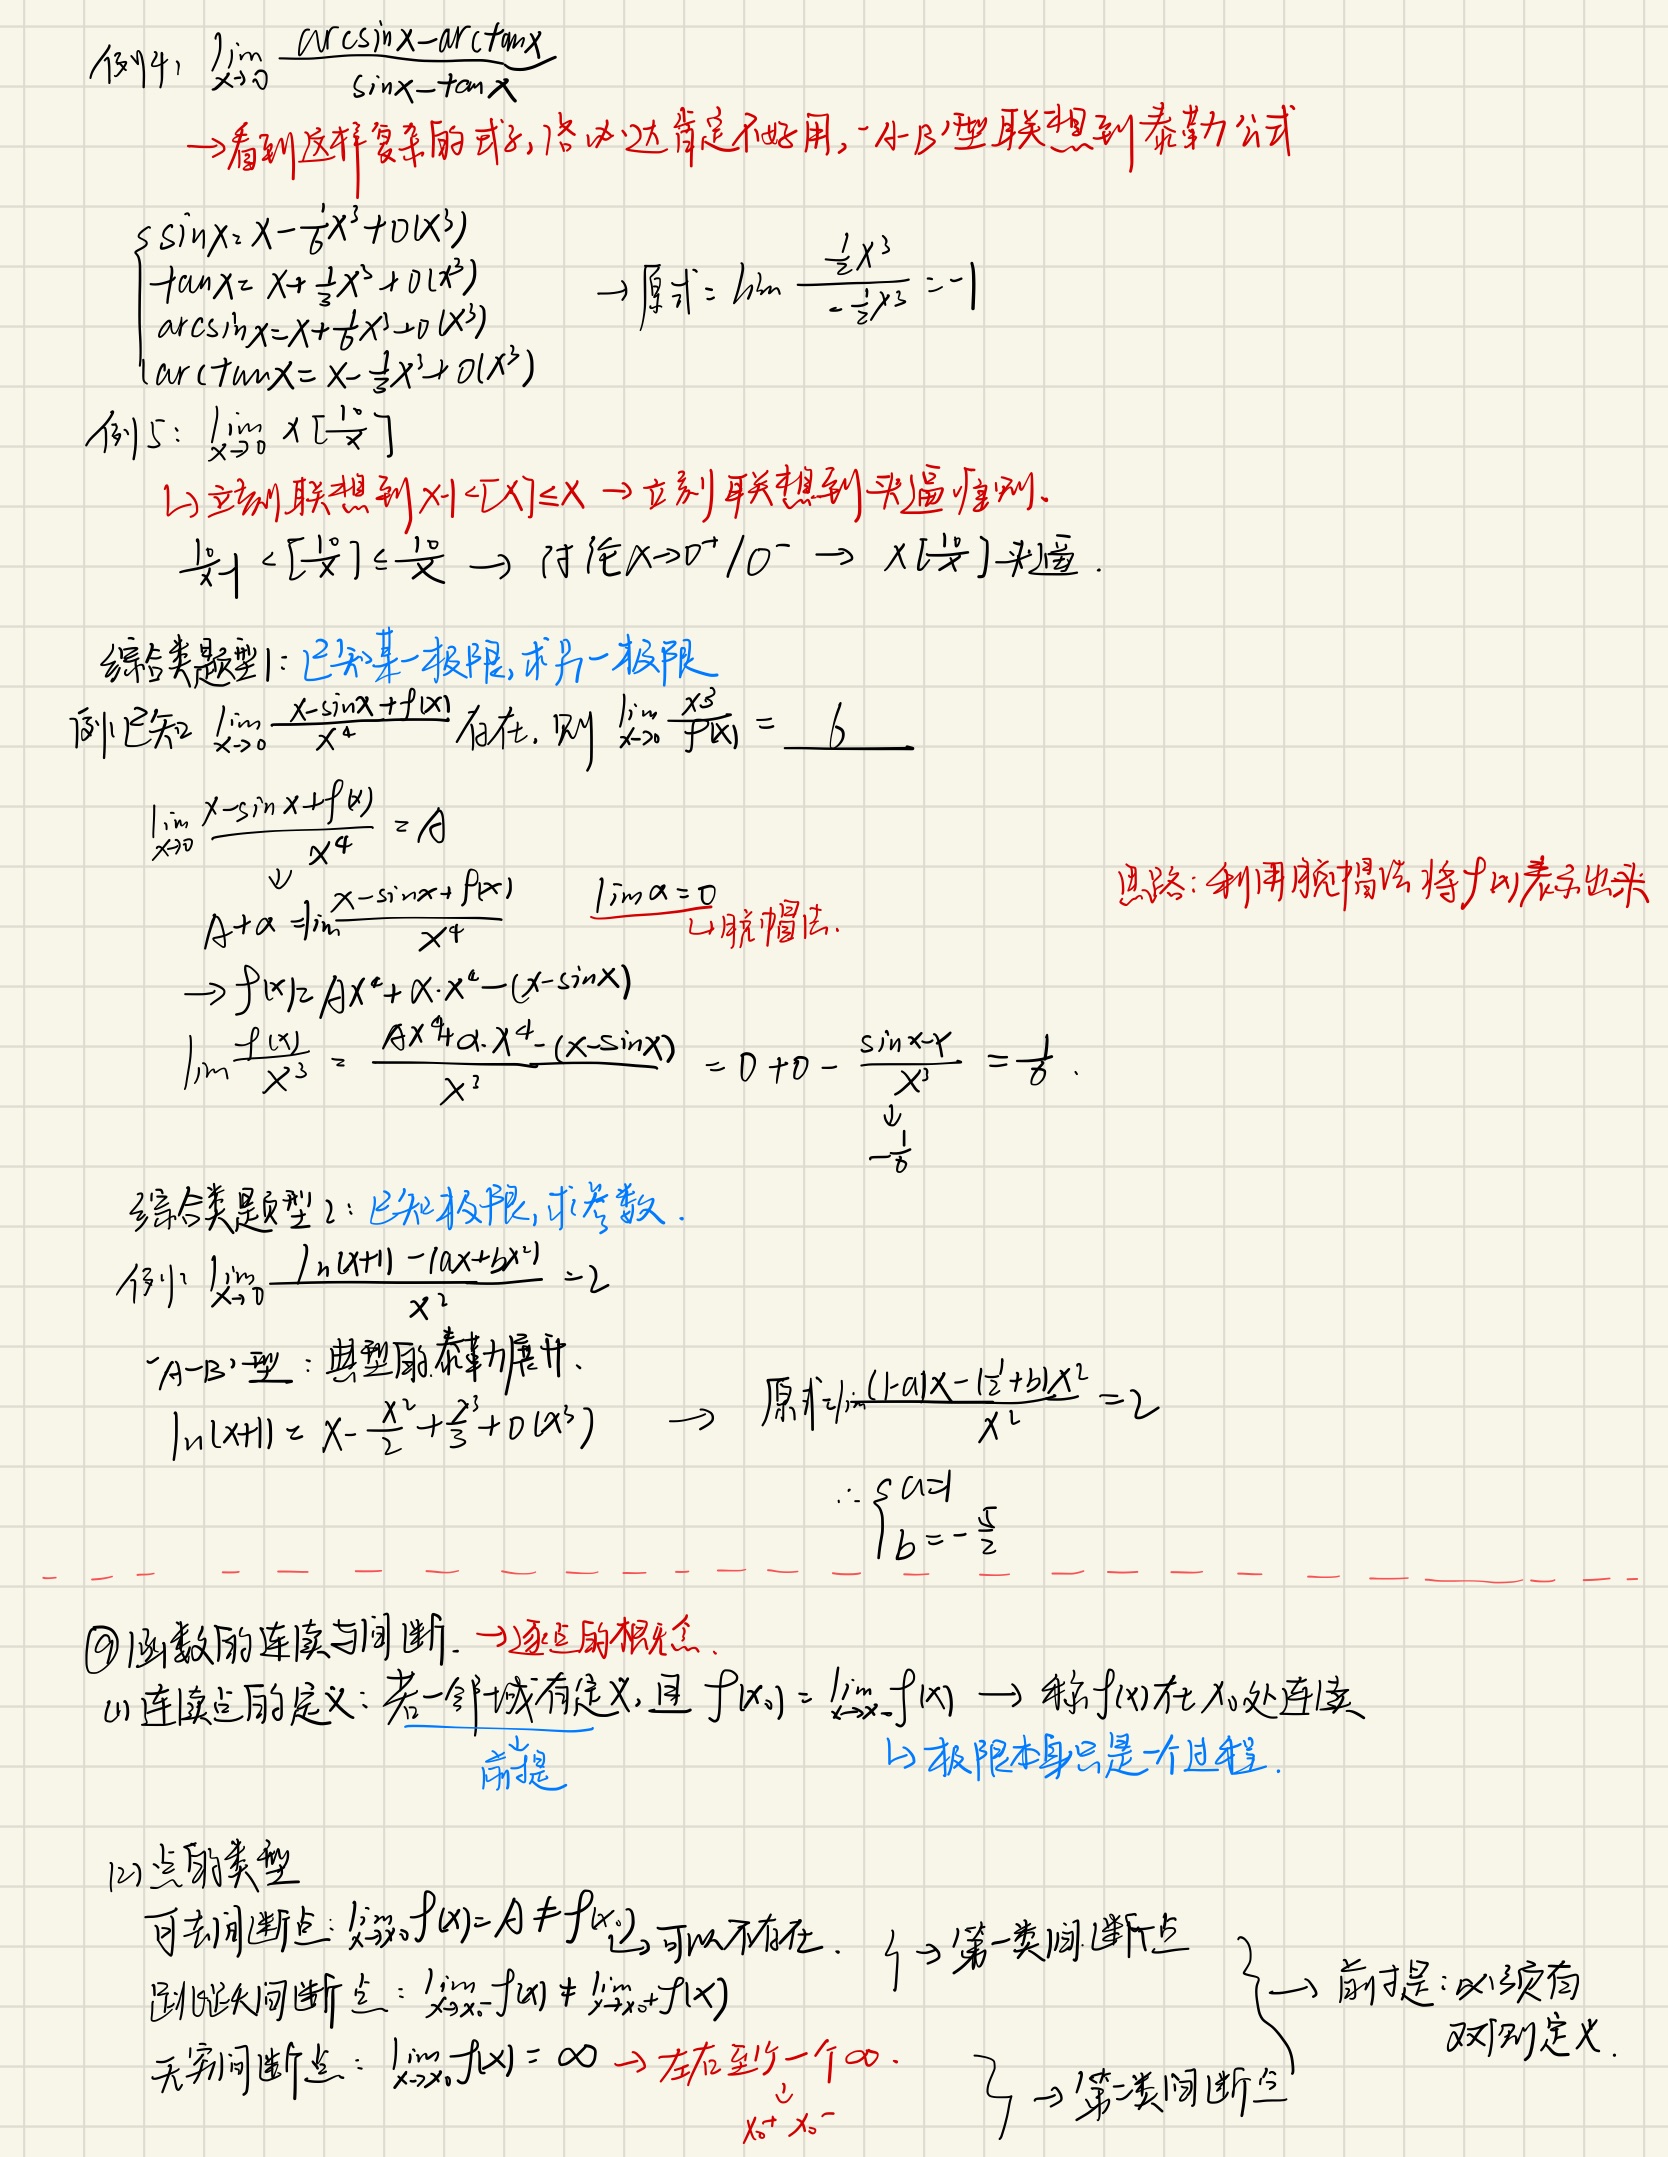 例4: lim_{x→0} (arcsinx-arctanx)/(sinx-tanx)
→看到这样复杂的式子,洛必达肯定不好用,"A-B"型联想到泰勒公式
sinx= x-1/6x³+o(x³)
tanx= x+1/3x³+o(x³)
→原式=lim (1/2x³)/(-1/2x³) =-1
arcsinx=x+1/6x³+o(x³)
arctanx= x-1/3x³+o(x³)
例5: lim_{x→0} x[10/x]
↳立刻联想到 x-1<[x]≤x → 立刻联想到夹逼准则.
10/x-1 < [10/x] ≤ 10/x → 讨论x→0⁺/0⁻ → x[10/x]夹逼.
综合类题型1: 已知某一极限,求另一极限
例1 已知 lim_{x→0} (x-sinx+f(x))/x⁴ 存在. 则 lim_{x→0} x³/f(x) = 6
lim_{x→0} (x-sinx+f(x))/x⁴ = A
↓
A+α =lim (x-sinx+f(x))/x⁴ limα=0
↳脱帽法.
思路: 利用脱帽法将f(x)表示出来
→ f(x)= Ax⁴+α·x⁴-(x-sinx)
lim f(x)/x³ = (Ax⁴+α·x⁴-(x-sinx))/x³ = 0+0- (sinx-x)/x³ = 1/6.
↓
-1/6
综合类题型2: 已知极限,求参数.
例1: lim_{x→0} (ln(x+1)-(ax+bx²))/x² =2
"A-B"型: 典型的泰勒展开.
ln(x+1) = x-x²/2+x³/3+o(x³) → 原式=lim ((1-a)x-(1/2+b)x²)/x² =2
∴ { a=1
b=-5/2
⑨函数的连续与间断. →逐点的概念.
(1) 连续点的定义: 若一邻域有定义,且 f(x₀) = lim_{x→x₀} f(x) → 称f(x)在x₀处连续
↓
前提
↳极限本身只是一个过程.
(2) 点的类型
可去间断点: lim_{x→x₀} f(x)=A≠f(x₀) ↳可以不存在. } →第一类间断点
跳跃间断点: lim_{x→x₀⁻} f(x) ≠ lim_{x→x₀⁺} f(x)
} → 前提: 必须有
双侧定义.
无穷间断点: lim_{x→x₀} f(x) = ∞ →左右至少一个∞.
↓
x₀⁺ x₀⁻
} →第二类间断点